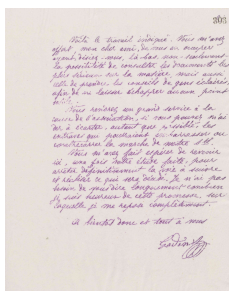 Voilà le travail indiqué. Vous m'avez
offert mon cher ami, de vous en occuper
ayant, disiez-vous, là-bas non seulement
la possibilité de consulter les documents les
plus sérieux sur la matière, mais aussi
celle de prendre les conseils de gens éclairés,
afin de ne laisser échapper aucun point
utile.
Vous rendrez un grand service à la
cause de si vous pouvez m'ai
der à écarter, autant que possible, les
entraves qui pourraient embarrasser ou
contrecarrer la marche de
Vous m'avez fait espérer de revenir
ici, une fois cette étude faite, pour
arrêter définitivement la voie à suivre
et rédiger ce que sera décidé. Je n'ai pas
besoin de vous dire longuement combien
je suis heureux de cette promesse, sur
laquelle je me repose complètement.
à bientôt donc et tout à vous